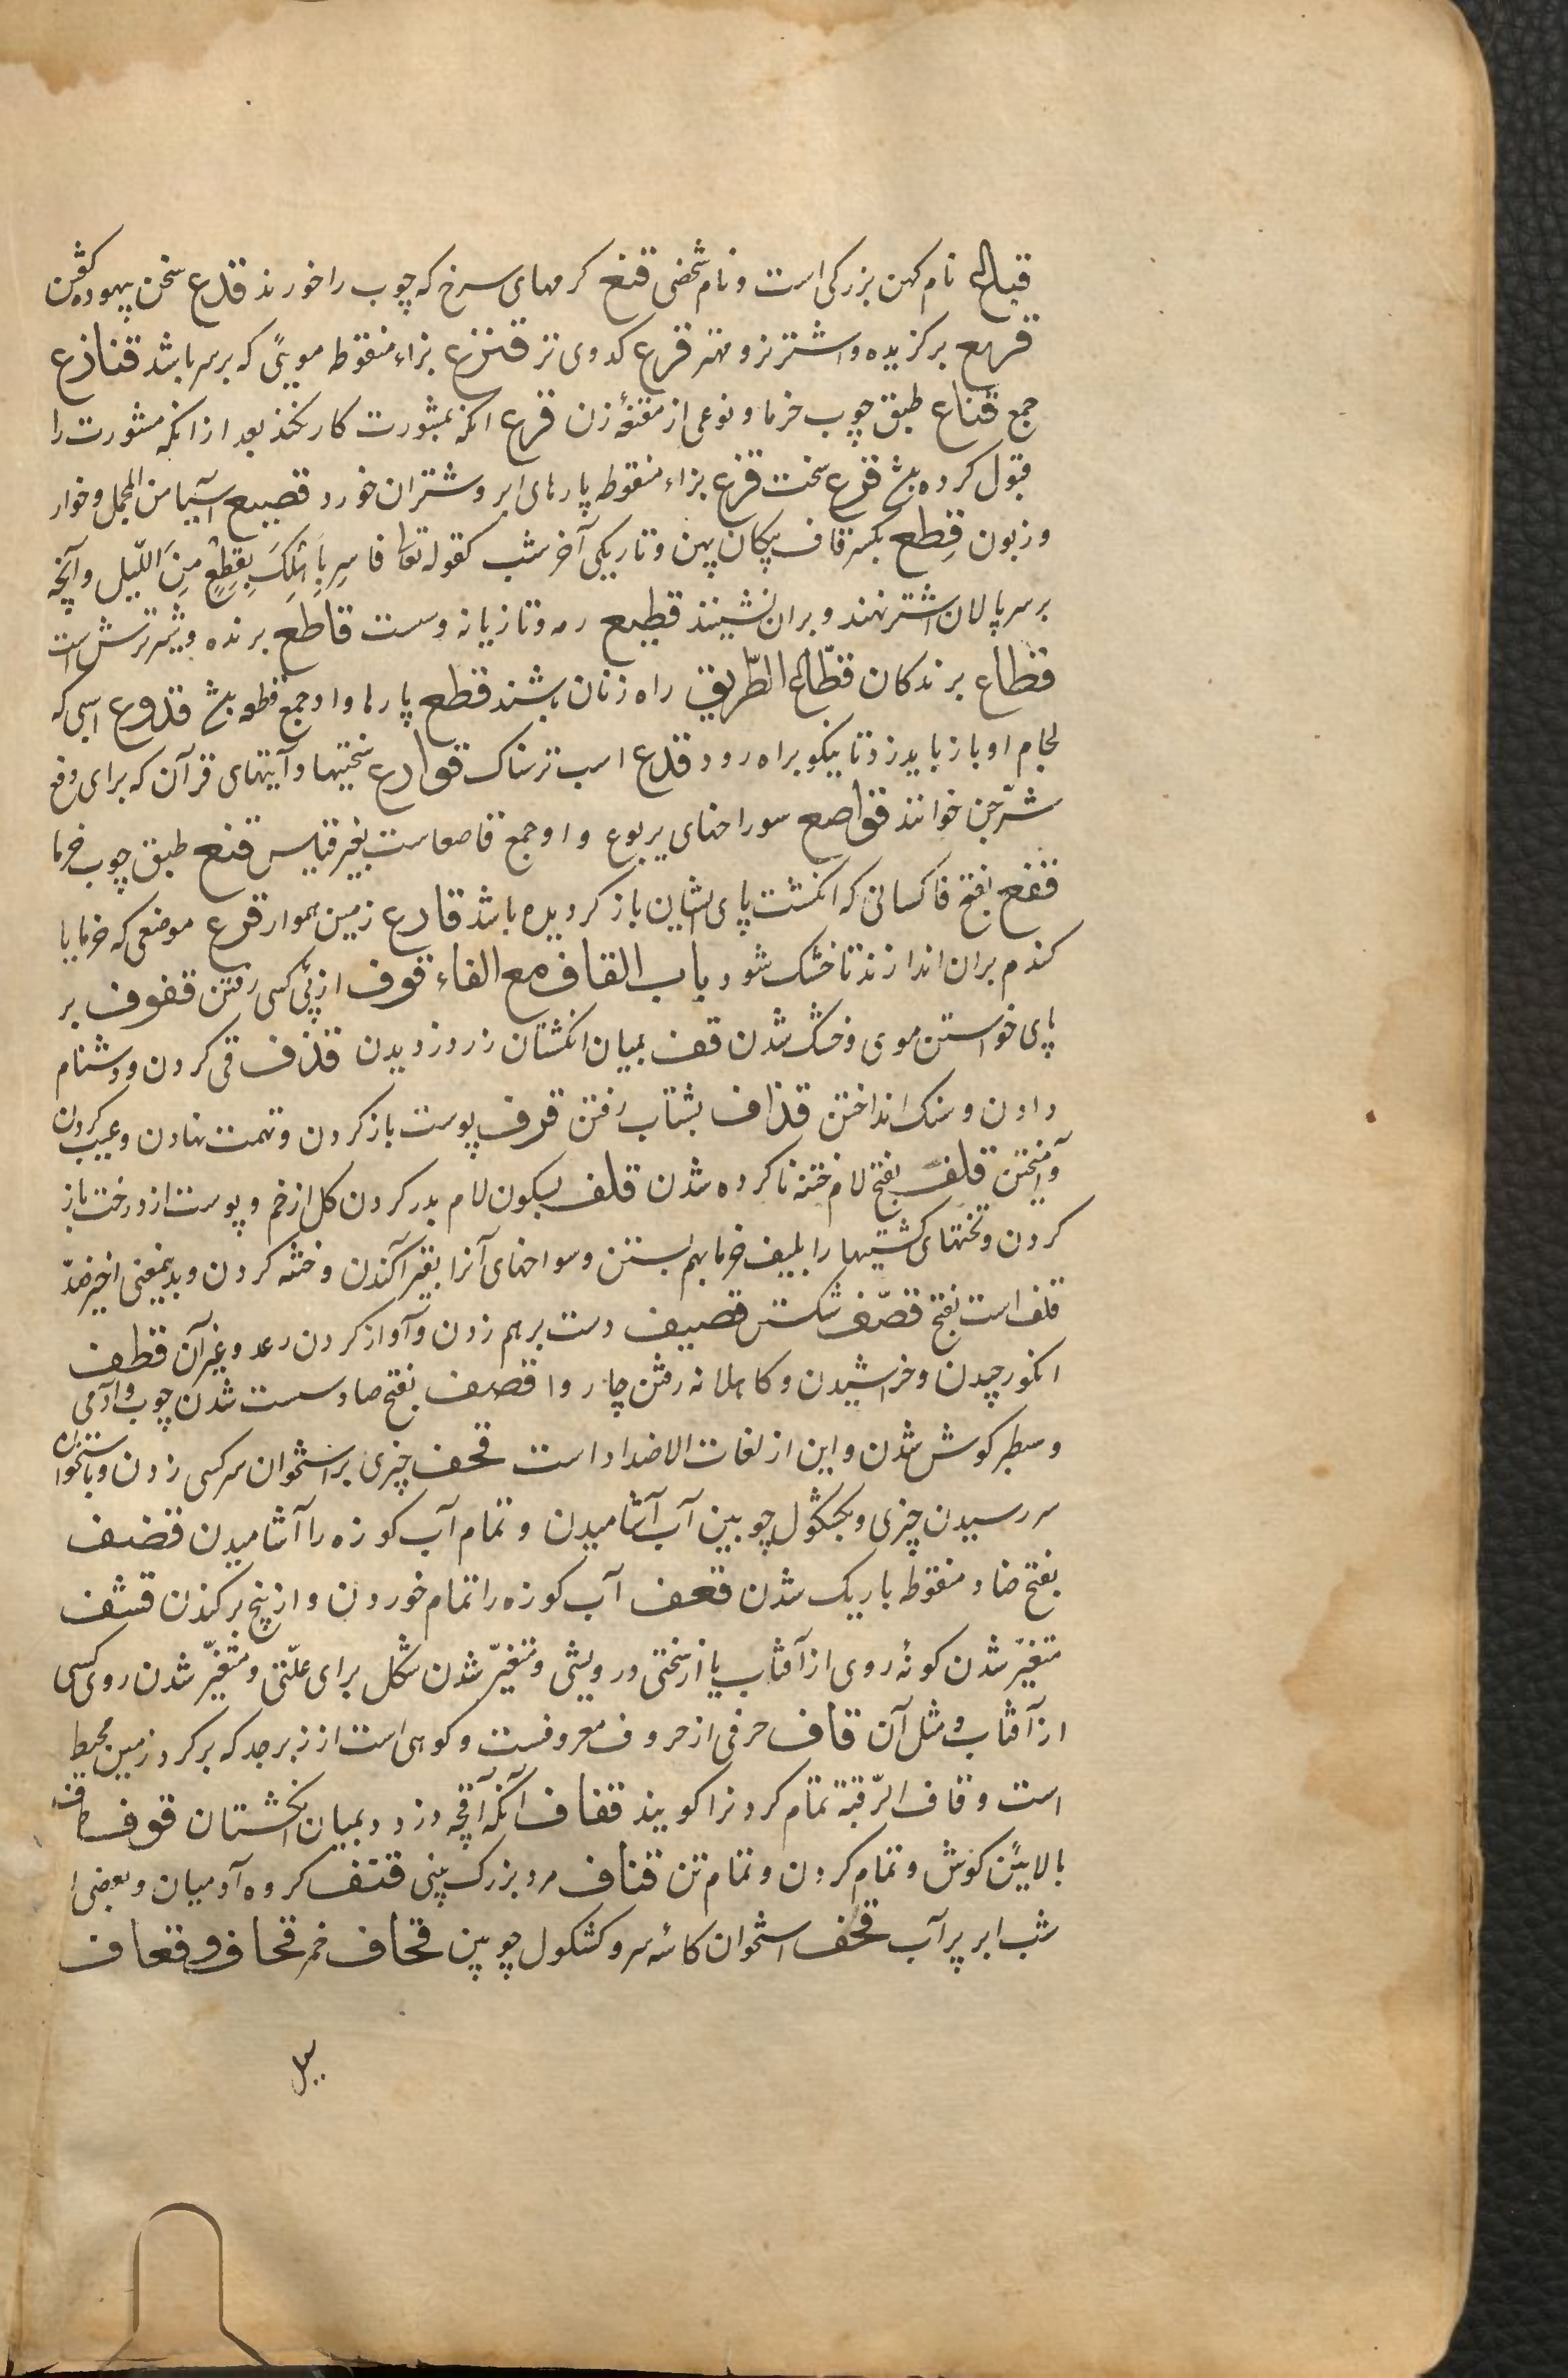 قباع نام کهن بزرکی است و نام شخصی قنع کرمهای سرخ که چوب را خورند قدع سخن بیهوده کفتن
قریع برکزیده و اشتر نر و مهتر قرع کدوی تر قنزع بزاء منقوطه مویی که بر سر باشد قنازع
جمع قناع طبق چوب خرما و نوعی از مقنعهٔ زن قرع انکه بمشورت کار نکند بعد از انکه مشورت را
قبول کرده باشد قزع سخت قزع بزاء منقوطه پارهای ابر و شتران خورد قصیع آسیا من المجمل و خوار
و زبون قِطع بکسر قاف پیکان پهن و تاریکی آخر شب کقوله تعالی فاسرِ باَهلِکَ بِقِطعٍ مِنَ اللّیل و آنچه
بر سر پالان اشتر نهند و بران نشینند قطیع رمه و تازیانه و ست قاطع برنده و شیر ترش است
قطاع برندکان قطّاع الطّریق راه زنان باشند قطع پارها و او جمع قطعه باشد قدوع اسبی که
لجام او باز باید زد تا نیکو براه رود قدع اسب ترسناک قوارع سختیها و آیتهای قرآن که برای دفع
شرّ جن خوانند قواصع سوراخهای یربوع و او جمع قاصعا ست بغیر قیاس قنع طبق چوب خرما
قفع بفتح فا کسانی که انکشت پای ایشان باز کردیده باشد قارع زمین هموار قرع موضعی که خرما یا
کندم بران اندازند تا خشک شود باب القاف مع الفاء قوف از پی کسی رفتن قفوف بر
پای خواستن موی و خشک شدن قف بمیان انکشتان زر دزدیدن قذف قی کردن و دشنام
دادن و سنک انداختن قذاف بشتاب رفتن قرف پوست باز کردن و تهمت نهادن و عیب کردن
و آمیختن قلف بفتح لام ختنه ناکرده شدن قلف بسکون لام بدر کردن کل از خم و پوست از درخت باز
کردن و تختهای کشتیها را بلیف خرما بهم بستن و سوراخهای آنرا بقیر آکندن و ختنه کردن و بدینمعنی اخیر ضدّ
قلف است بفتح قصّف شکستن قصیف دست بر هم زدن و آواز کردن رعد و غیر آن قطف
انکور چیدن و خراشیدن و کاهلانه رفتن چاروا قصف بفتح صاد سست شدن چوب و آدمی
و سطبر کوش شدن و این از لغات الاضداد است قحف چیزی بر استخوان سر کسی زدن و باستخوان
سر رسیدن چیزی و بکجکول چوبین آب آشامیدن و تمام آب کوزه را آشامیدن قضف
بفتح ضاد منقوطه باریک شدن قعف آب کوزه را تمام خوردن و از بیخ برکندن قشف
متغیّر شدن کونهٔ روی از آفتاب یا از سختی درویشی و متغیّر شدن شکل برای علّتی و متغیّر شدن روی کسی
از آفتاب و مثل آن قاف حرفی از حروف معروفست و کوهی است از زبرجد که بر کرد زمین محیط
است و قاف الرّقبة تمام کردنرا کویند قفاف آنکه آقچه دزدد بمیان انکشتان قوف طرف
بالایین کوش و تمام کردن و تمام تن قناف مرد بزرک بینی قنف کروه آدمیان و بعضی
شب ابر پر آب قحف استخوان کاسهٔ سر و کشکول چوبین قحاف خمر قحاف و قعاف
سیل